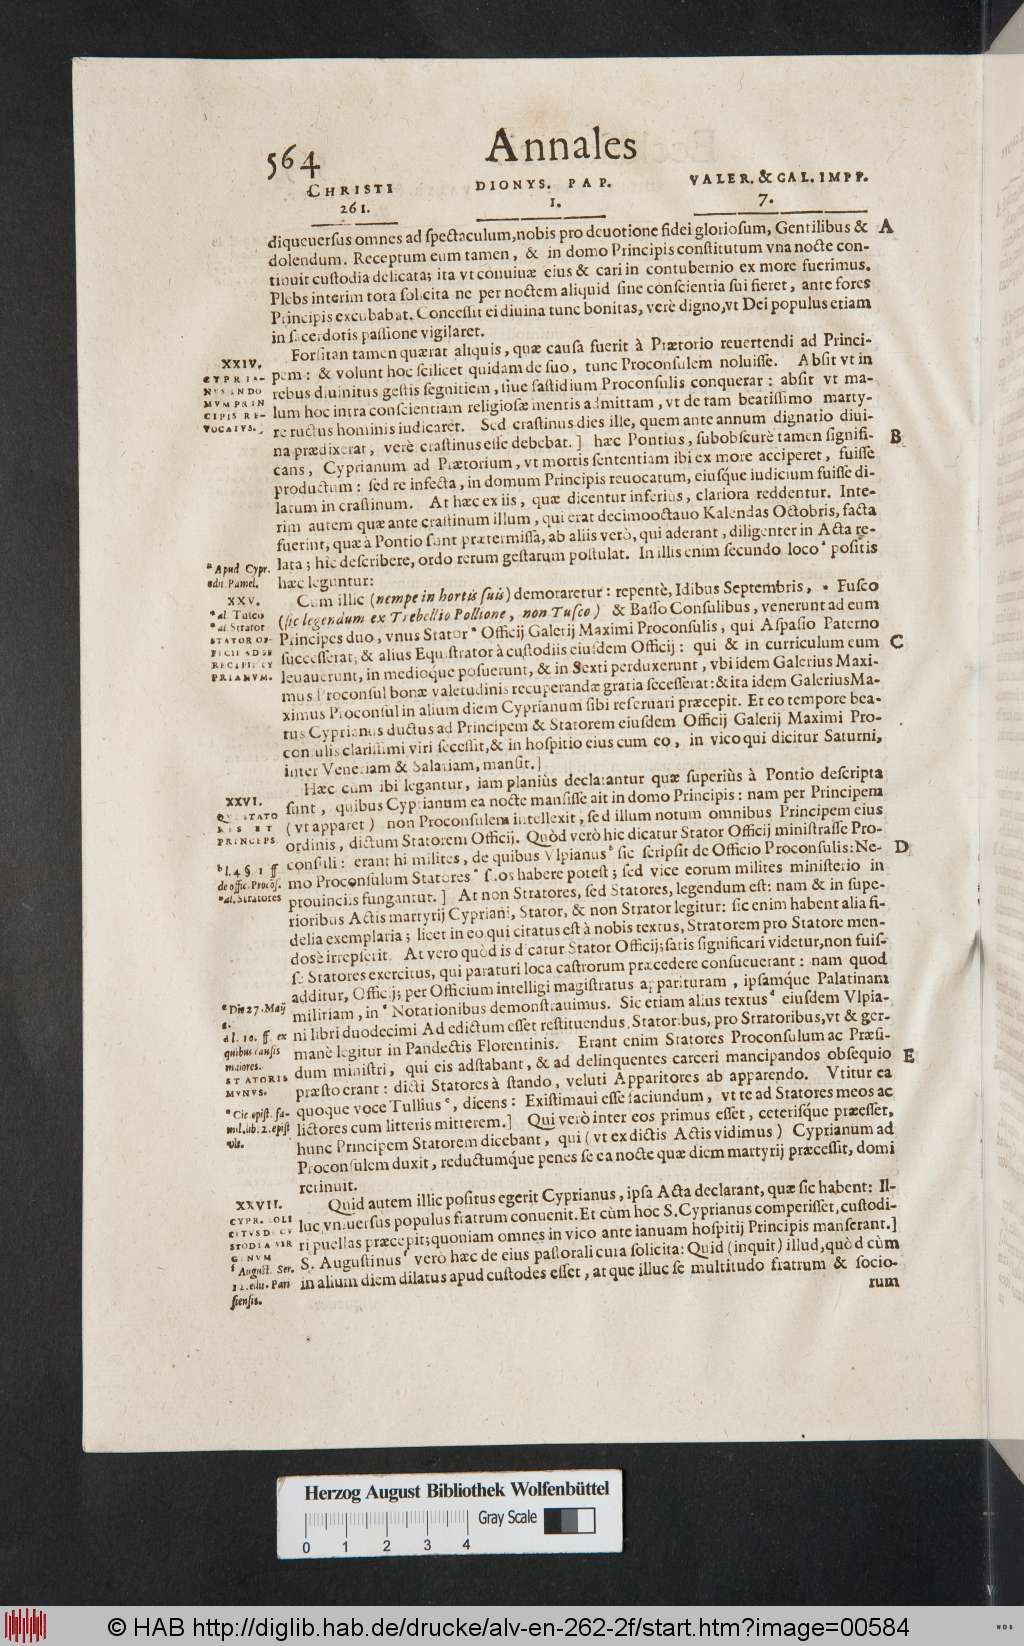 564
Annales
CHRISTI
261.
DIONYS. PAP.
1.
VALER. & GAL. IMPP.
7.
diqueuersus omnes ad spectaculum, nobis pro deuotione fidei gloriosum, Gentilibus & A
dolendum. Receptum eum tamen, & in domo Principis constitutum vna nocte con-
tinuit custodia delicata; ita vt conuiuæ eius & cari in contubernio ex more fuerimus.
Plebs interim tota solicita ne per noctem aliquid sine conscientia sui fieret, ante fores
Principis excubabat. Concessit ei diuina tunc bonitas, verè digno, vt Dei populus etiam
in sacerdotis passione vigilaret.
XXIV.
CYPRIA-
NVS IN DO
MVM PRIN
CIPIS RE-
VOCATVS.
Forsitan tamen quærat aliquis, quæ causa fuerit à Prætorio reuertendi ad Princi-
pem: & volunt hoc scilicet quidam de suo, tunc Proconsulem noluisse. Absit vt in
rebus diuinitus gestis segnitiem, siue fastidium Proconsulis conquerar: absit vt ma-
lum hoc intra conscientiam religiosæ mentis admittam, vt de tam beatissimo marty-
re ructus hominis iudicaret. Sed crastinus dies ille, quem ante annum dignatio diui-
na prædixerat, verè crastinus esse debebat.] hæc Pontius, subobscurè tamen signifi- B
cans, Cyprianum ad Prætorium, vt mortis sententiam ibi ex more acciperet, fuisse
productum: sed re infecta, in domum Principis reuocatum, eiusque iudicium fuisse di-
latum in crastinum. At hæc ex iis, quæ dicentur inferius, clariora reddentur. Inte-
rim autem quæ ante crastinum illum, qui erat decimooctauo Kalendas Octobris, facta
fuerint, quæ à Pontio sunt prætermissa, ab aliis verò, qui aderant, diligenter in Acta re-
lata; hic describere, ordo rerum gestarum postulat. In illis enim secundo loco a positis
hæc leguntur:
a Apud Cypr.
edit. Pamel.
XXV.
* al. Tusco
* al Strator
STATOR OF-
FICII ADSE
RECIPIT CY
PRIANVM.
Cum illic (nempe in hortis suis) demoraretur: repentè, Idibus Septembris, * Fusco
(sic legendum ex Trebellio Pollione, non Tusco) & Basso Consulibus, venerunt ad eum
Principes duo, vnus Stator * Officij Galerij Maximi Proconsulis, qui Aspasio Paterno
successerat; & alius Equistrator à custodiis eiusdem Officij: qui & in curriculum eum C
leuauerunt, in medioque posuerunt, & in Sexti perduxerunt, vbi idem Galerius Maxi-
mus Proconsul bonæ valetudinis recuperandæ gratia secesserat: & ita idem Galerius Ma-
ximus Proconsul in alium diem Cyprianum sibi reseruari præcepit. Et eo tempore bea-
tus Cyprianus ductus ad Principem & Statorem eiusdem Officij Galerij Maximi Pro-
consulis clarissimi viri secessit, & in hospitio eius cum eo, in vico qui dicitur Saturni,
inter Veneriam & Salariam, mansit.]
XXVI.
PRINCEPS
Hæc cum ibi legantur, iam planiùs declarantur quæ superiùs à Pontio descripta
sunt, quibus Cyprianum ea nocte mansisse ait in domo Principis: nam per Principem
(vt apparet) non Proconsulem intellexit, sed illum notum omnibus Principem eius
ordinis, dictum Statorem Officij. Quòd verò hic dicatur Stator Officij ministrasse Pro-
consuli: erant hi milites, de quibus Vlpianus b sic scripsit de Officio Proconsulis: Ne- D
mo Proconsulum Statores * suos habere potest; sed vice eorum milites ministerio in
prouinciis fungantur.] At non Stratores, sed Statores, legendum est: nam & in supe-
rioribus Actis martyrij Cypriani, Stator, & non Strator legitur: sic enim habent alia fi-
delia exemplaria; licet in eo qui citatus est à nobis textus, Stratorem pro Statore men-
dosè irrepserit. At vero quòd is dicatur Stator Officij; satis significari videtur, non fuis-
se Statores exercitus, qui paraturi loca castrorum præcedere consueuerant: nam quod
additur, Officij; per Officium intelligi magistratus apparituram, ipsamque Palatinam
militiam, in c Notationibus demonstrauimus. Sic etiam alius textus d eiusdem Vlpia-
ni libri duodecimi Ad edictum esset restituendus, Statoribus, pro Stratoribus, vt & ger-
manè legitur in Pandectis Florentinis. Erant enim Statores Proconsulum ac Præsi-
dum ministri, qui eis adstabant, & ad delinquentes carceri mancipandos obsequio E
præsto erant: dicti Statores à stando, veluti Apparitores ab apparendo. Vtitur ea
quoque voce Tullius e, dicens: Existimaui esse faciundum, vt te ad Statores meos ac
lictores cum litteris mitterem.] Qui verò inter eos primus esset, ceterisque præesset,
hunc Principem Statorem dicebant, qui (vt ex dictis Actis vidimus) Cyprianum ad
Proconsulem duxit, reductumque penes se ea nocte quæ diem martyrij præcessit, domi
retinuit.
b l. 4 §. 1 ff
de offic. Procõs.
* al. Stratores
c Die 27. Maij
d l. 10. ff ex
quibus causis
maiores.
STATORIS
MVNVS.
e Cic epist. fa-
mil. lib. 2. epist
XXVII.
CYPR. SOLI
CITVS DE CV
STODIA VIR
GINVM
f August. Ser.
12. edit. Pari
siensis.
Quid autem illic positus egerit Cyprianus, ipsa Acta declarant, quæ sic habent: Il-
luc vniuersus populus fratrum conuenit. Et cùm hoc S. Cyprianus comperisset, custodi-
ri puellas præcepit; quoniam omnes in vico ante ianuam hospitij Principis manserant.]
S. Augustinus f verò hæc de eius pastorali cura solicita: Quid (inquit) illud, quòd cùm
in alium diem dilatus apud custodes esset, atque illuc se multitudo fratrum & socio-
rum
Herzog August Bibliothek Wolfenbüttel
Gray Scale
0 1 2 3 4
© HAB http://diglib.hab.de/drucke/alv-en-262-2f/start.htm?image=00584